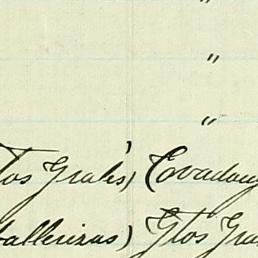 "
"
"
Gtos Grales) Covadong
ballerizas) Gtos Gra